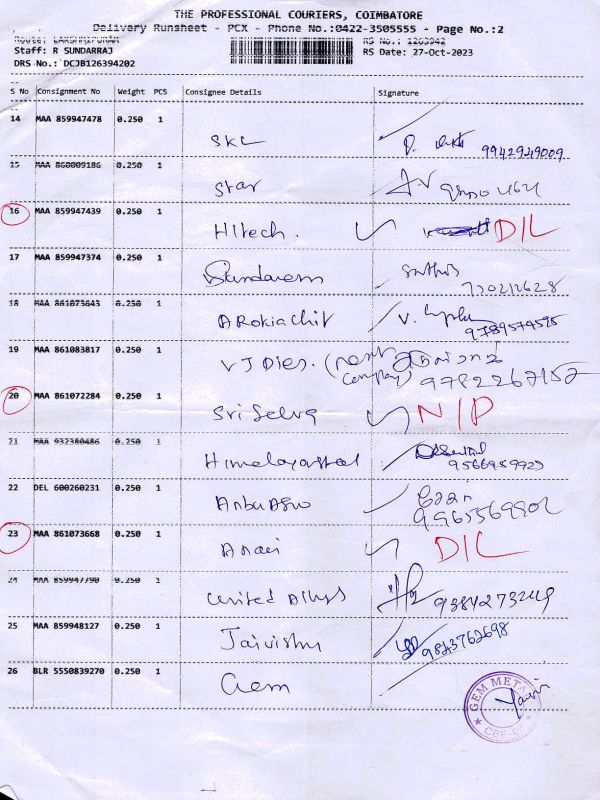 THE PROFESSIONAL COURIERS, COIMBATORE
Delivery Runsheet - PCX - Phone No.:0422-3505555 - Page No.:2
Route: LAKSHMIPURAM RS No.: 1263942
Staff: R SUNDARRAJ RS Date: 27-Oct-2023
DRS No.: DCJB126394202
S No Consignment No Weight PCS Consignee Details Signature
14 MAA 859947478 0.250 1 SKC 9942949009
15 MAA 860009186 0.250 1 Star
16 MAA 859947439 0.250 1 Hitech. D/L
17 MAA 859947374 0.250 1 Sundaram 720212628
18 MAA 861073643 0.250 1 ARokia Chit V. 9789579595
19 MAA 861083817 0.250 1 VJ Dies. 9782267152
20 MAA 861072284 0.250 1 Sri Selva N/P
21 MAA 932380486 0.250 1 9566959923
22 DEL 600260231 0.250 1 9965569802
23 MAA 861073668 0.250 1 Anai D/L
24 MAA 859947790 0.250 1 United Alloys
25 MAA 859948127 0.250 1 Jaivishnu 9843762698
26 BLR 5550839270 0.250 1 Gem
GEM METAL